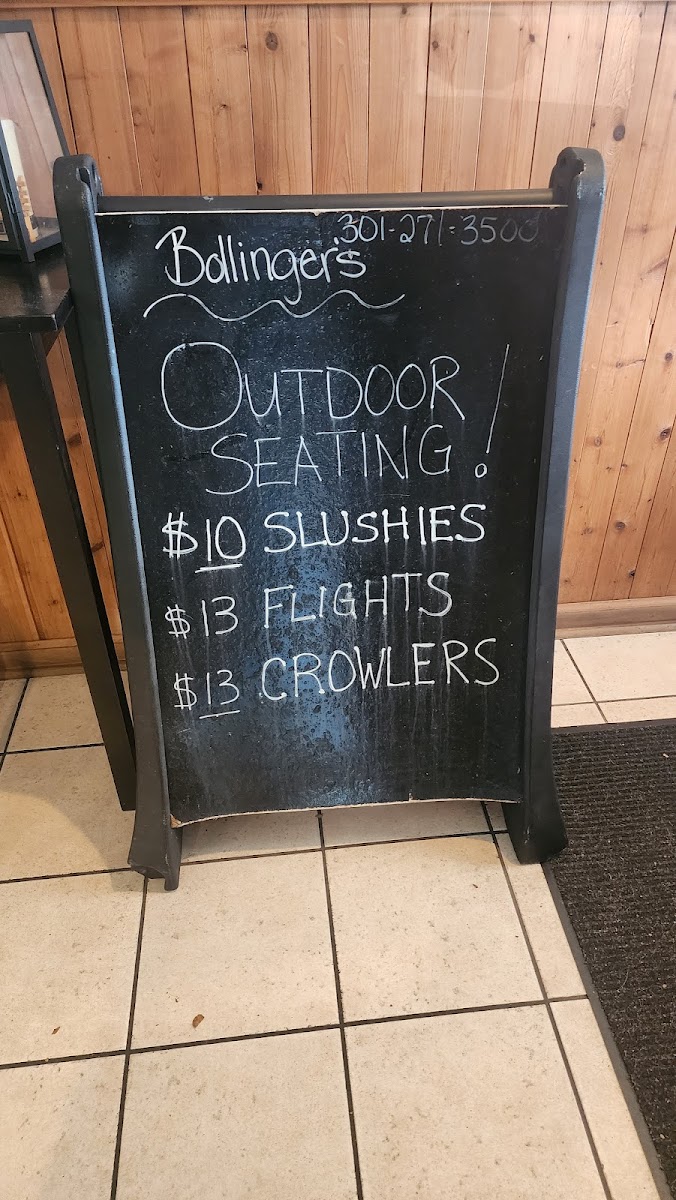 Bollinger's
301-271-3500
OUTDOOR
SEATING!
$10 SLUSHIES
$13 FLIGHTS
$13 CROWLERS